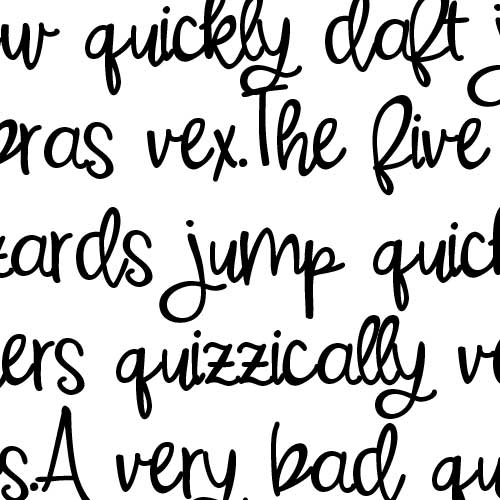 ow quickly daft j
bras vex.The five
zards jump quick
ers quizzically ve
s.A very bad qu